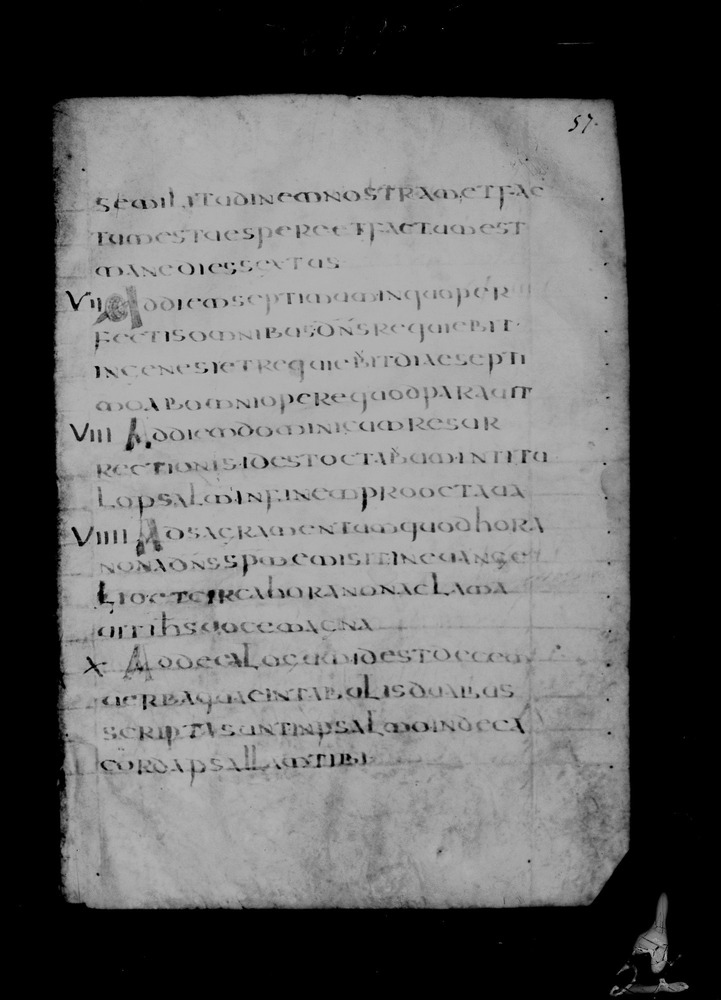 57.
SEMILITUDINEM NOSTRAM ET FAC
TUM EST UESPERE ET FACTUM EST
MANE DIES SEXTUS
VII AD DIEM SEPTIMUM IN QUO PER
FECTIS OMNIBUS DN̄S REQUIEBIT
IN GENESI ET REQUIEBIT DIAE SEPTI
MO AB OMNI OPERE QUOD PARAUIT
VIII AD DIEM DOMINICUM RESUR
RECTIONIS ID EST OCTABUM IN TITU
LO PSALM IN FINEM PRO OCTAUA
VIIII AD SACRAMENTUM QUOD HORA
NONA DN̄S SPM EMISIT IN EUANGE
LIO ET CIRCA HORA NONA CLAMA
UIT IHS UOCE MAGNA
X AD DECALOGUM ID EST DECEM
UERBA QUAE IN TABULIS DUABUS
SCRIPTA SUNT IN PSALMO IN DECA
CORDA PSALLAM TIBI